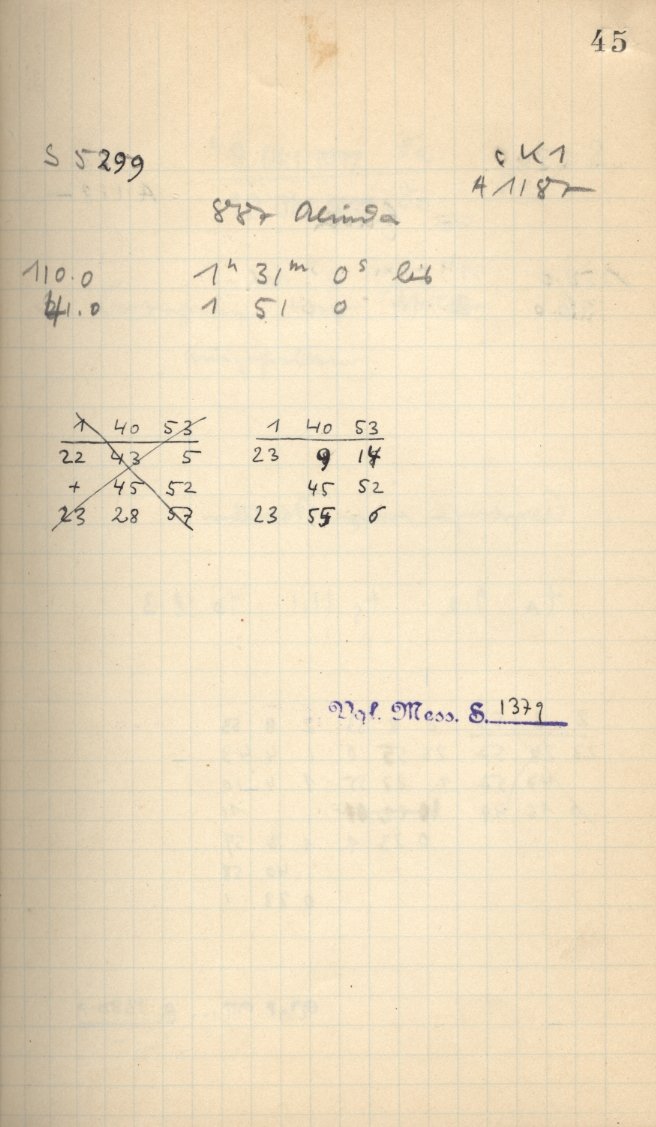 45
S 5299
c K1
A 1187
887 Alinda
110.0 1h 31m 0s bis
41.0 1 51 0
1 40 53 1 40 53
22 43 5 23 9 14
+ 45 52 45 52
23 28 57 23 55 6
Vgl. Mess. S. 1379